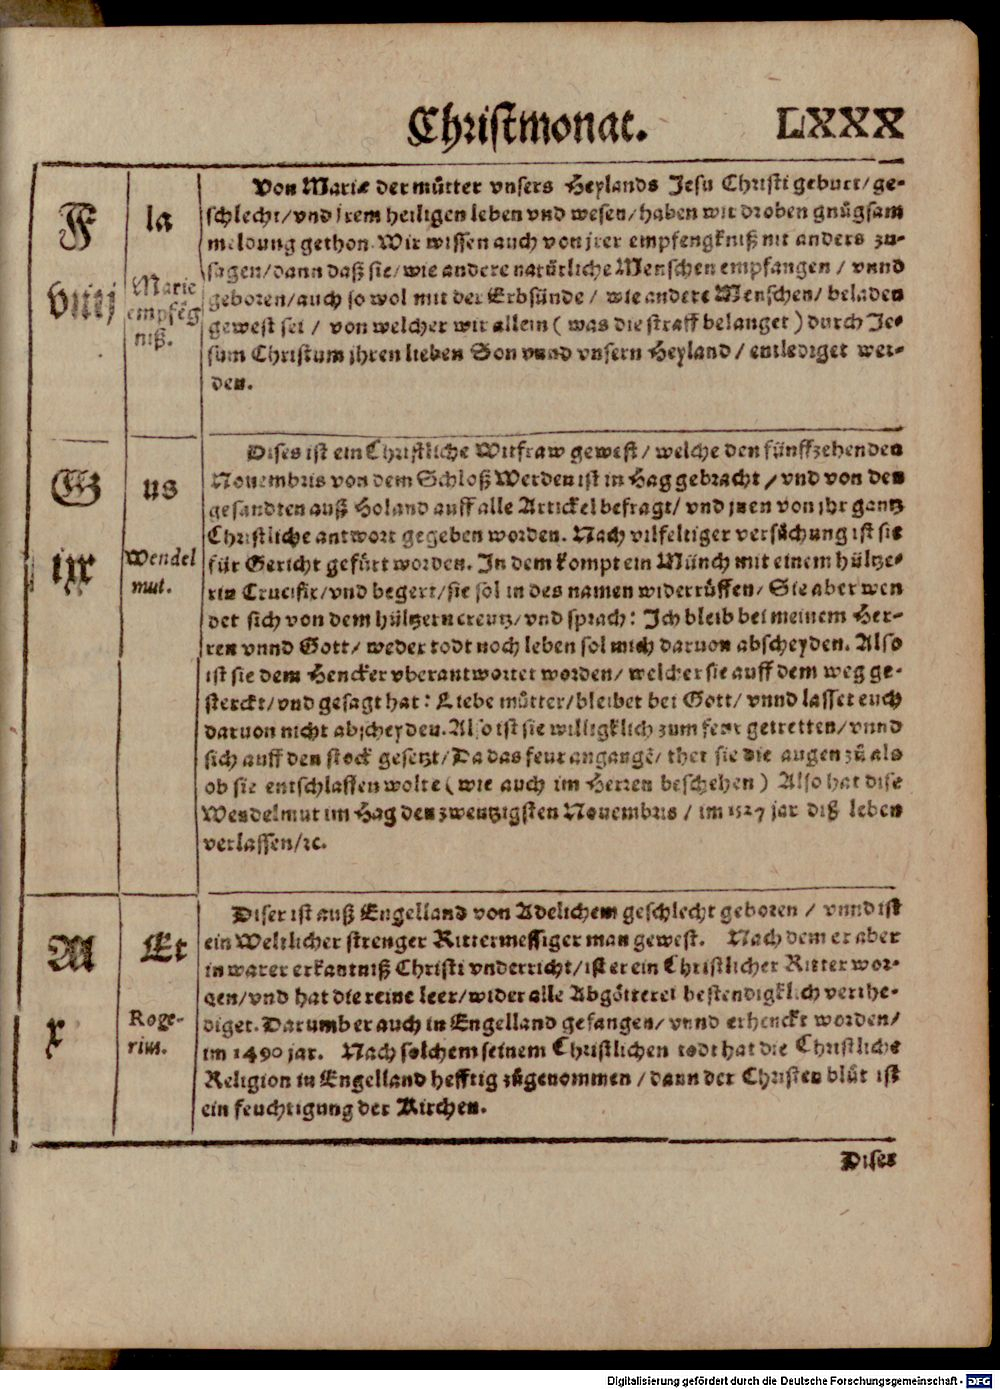 Christmonat. LXXX
F
viij
la
Marie
empfēg
niß.
Von Marie der můtter vnsers Heylands Jesu Christi geburt/ge-
schlecht/vnd jrem heiligen leben vnd wesen/haben wir droben gnůgsam
meldung gethon. Wir wissen auch von jrer empfengkniß nit anders zu-
sagen/dann daß sie/wie andere natürliche Menschen empfangen / vnnd
geboren/auch so wol mit der Erbsünde / wie andere Menschen/ beladen
gewest sei / von welcher wir allein ( was die straff belanget ) durch Je-
sum Christum jhren lieben Son vnnd vnsern Heyland / entlediget wer-
den.
G
ix
us
Wendel
mut.
Dises ist ein Christliche Witfraw gewest/ welche den fünffzehenden
Nouembris von dem Schloß Werden ist in Hag gebracht / vnd von den
gesandten auß Holand auff alle Artickel befragt/ vnd jnen von jhr gantz
Christliche antwort gegeben worden. Nach vilfeltiger versůchung ist sie
für Gericht gefürt worden. In dem kompt ein Münch mit einem hültze-
rin Crucifix/vnd begert/sie sol in des namen widerrůffen/ Sie aber wen
det sich von dem hültzern creutz/ vnd sprach: Ich bleib bei meinem Her-
ren vnnd Gott/ weder todt noch leben sol mich daruon abscheyden. Also
ist sie dem Hencker vberantwortet worden/ welcher sie auff dem weg ge-
sterckt/vnd gesagt hat: Liebe můtter/bleibet bei Gott/ vnnd lasset euch
daruon nicht abscheyden. Also ist sie willigklich zum feur getretten/vnnd
sich auff den stock gesetzt/Da das feur angangē/ thet sie die augen zů als
ob sie entschlaffen wolte ( wie auch im Herren beschehen ) Also hat dise
Wendelmut im Hag den zwentzigsten Nouembris / im 1527 jar diß leben
verlassen/ꝛc.
A
x
Et
Roge-
rius.
Diser ist auß Engelland von Adelichem geschlecht geboren / vnnd ist
ein Weltlicher strenger Rittermessiger man gewest. Nach dem er aber
in warer erkantniß Christi vnderricht/ist er ein Christlicher Ritter wor-
den/vnd hat die reine leer/wider alle Abgötterei bestendigklich verthe-
diget. Darumb er auch in Engelland gefangen/ vnnd erhenckt worden/
im 1490 jar. Nach solchem seinem Christlichen todt hat die Christliche
Religion in Engelland hefftig zůgenommen / dann der Christen blůt ist
ein feuchtigung der Kirchen.
Diser
Digitalisierung gefördert durch die Deutsche Forschungsgemeinschaft - DFG